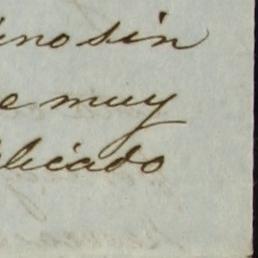 ino sin
e muy
blicado